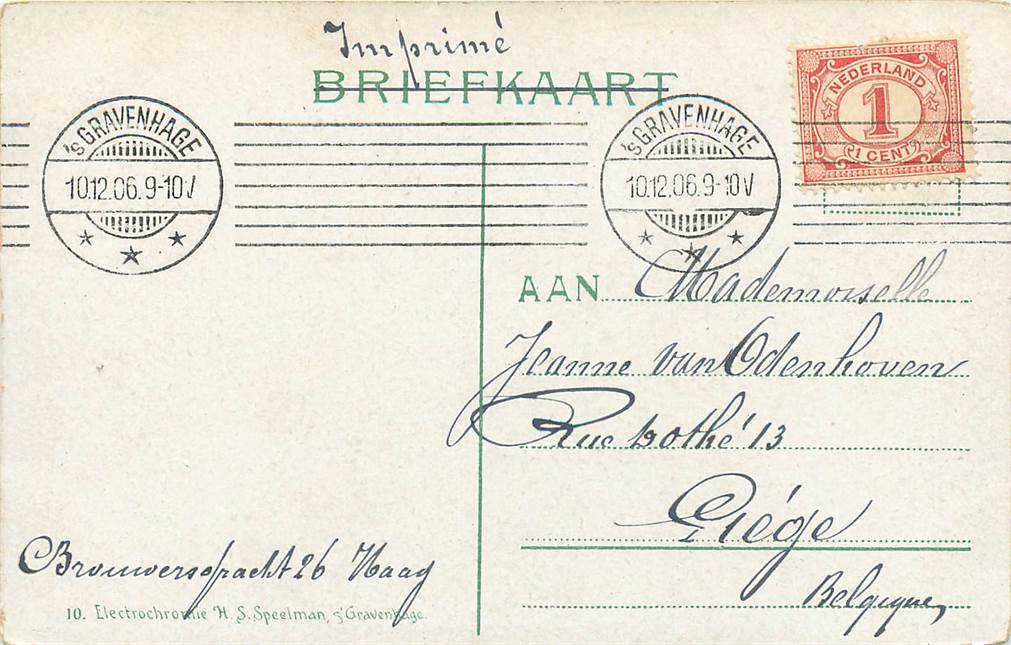 Imprimé
BRIEFKAART
NEDERLAND
1
1 CENT
'sGRAVENHAGE
10.12.06.9-10V
'sGRAVENHAGE
10.12.06.9-10V
AAN Mademoiselle
Jeanne van Odenhoven
Rue 13
Liége
Belgique,
Brouwersgracht 26 Haag
10. Electrochromie H. S. Speelman, 's Gravenhage.